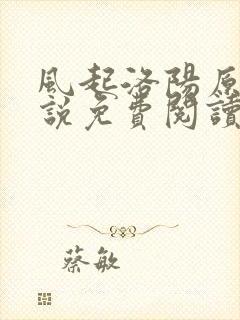 風起洛陽原
說免費閱讀
蔡敏